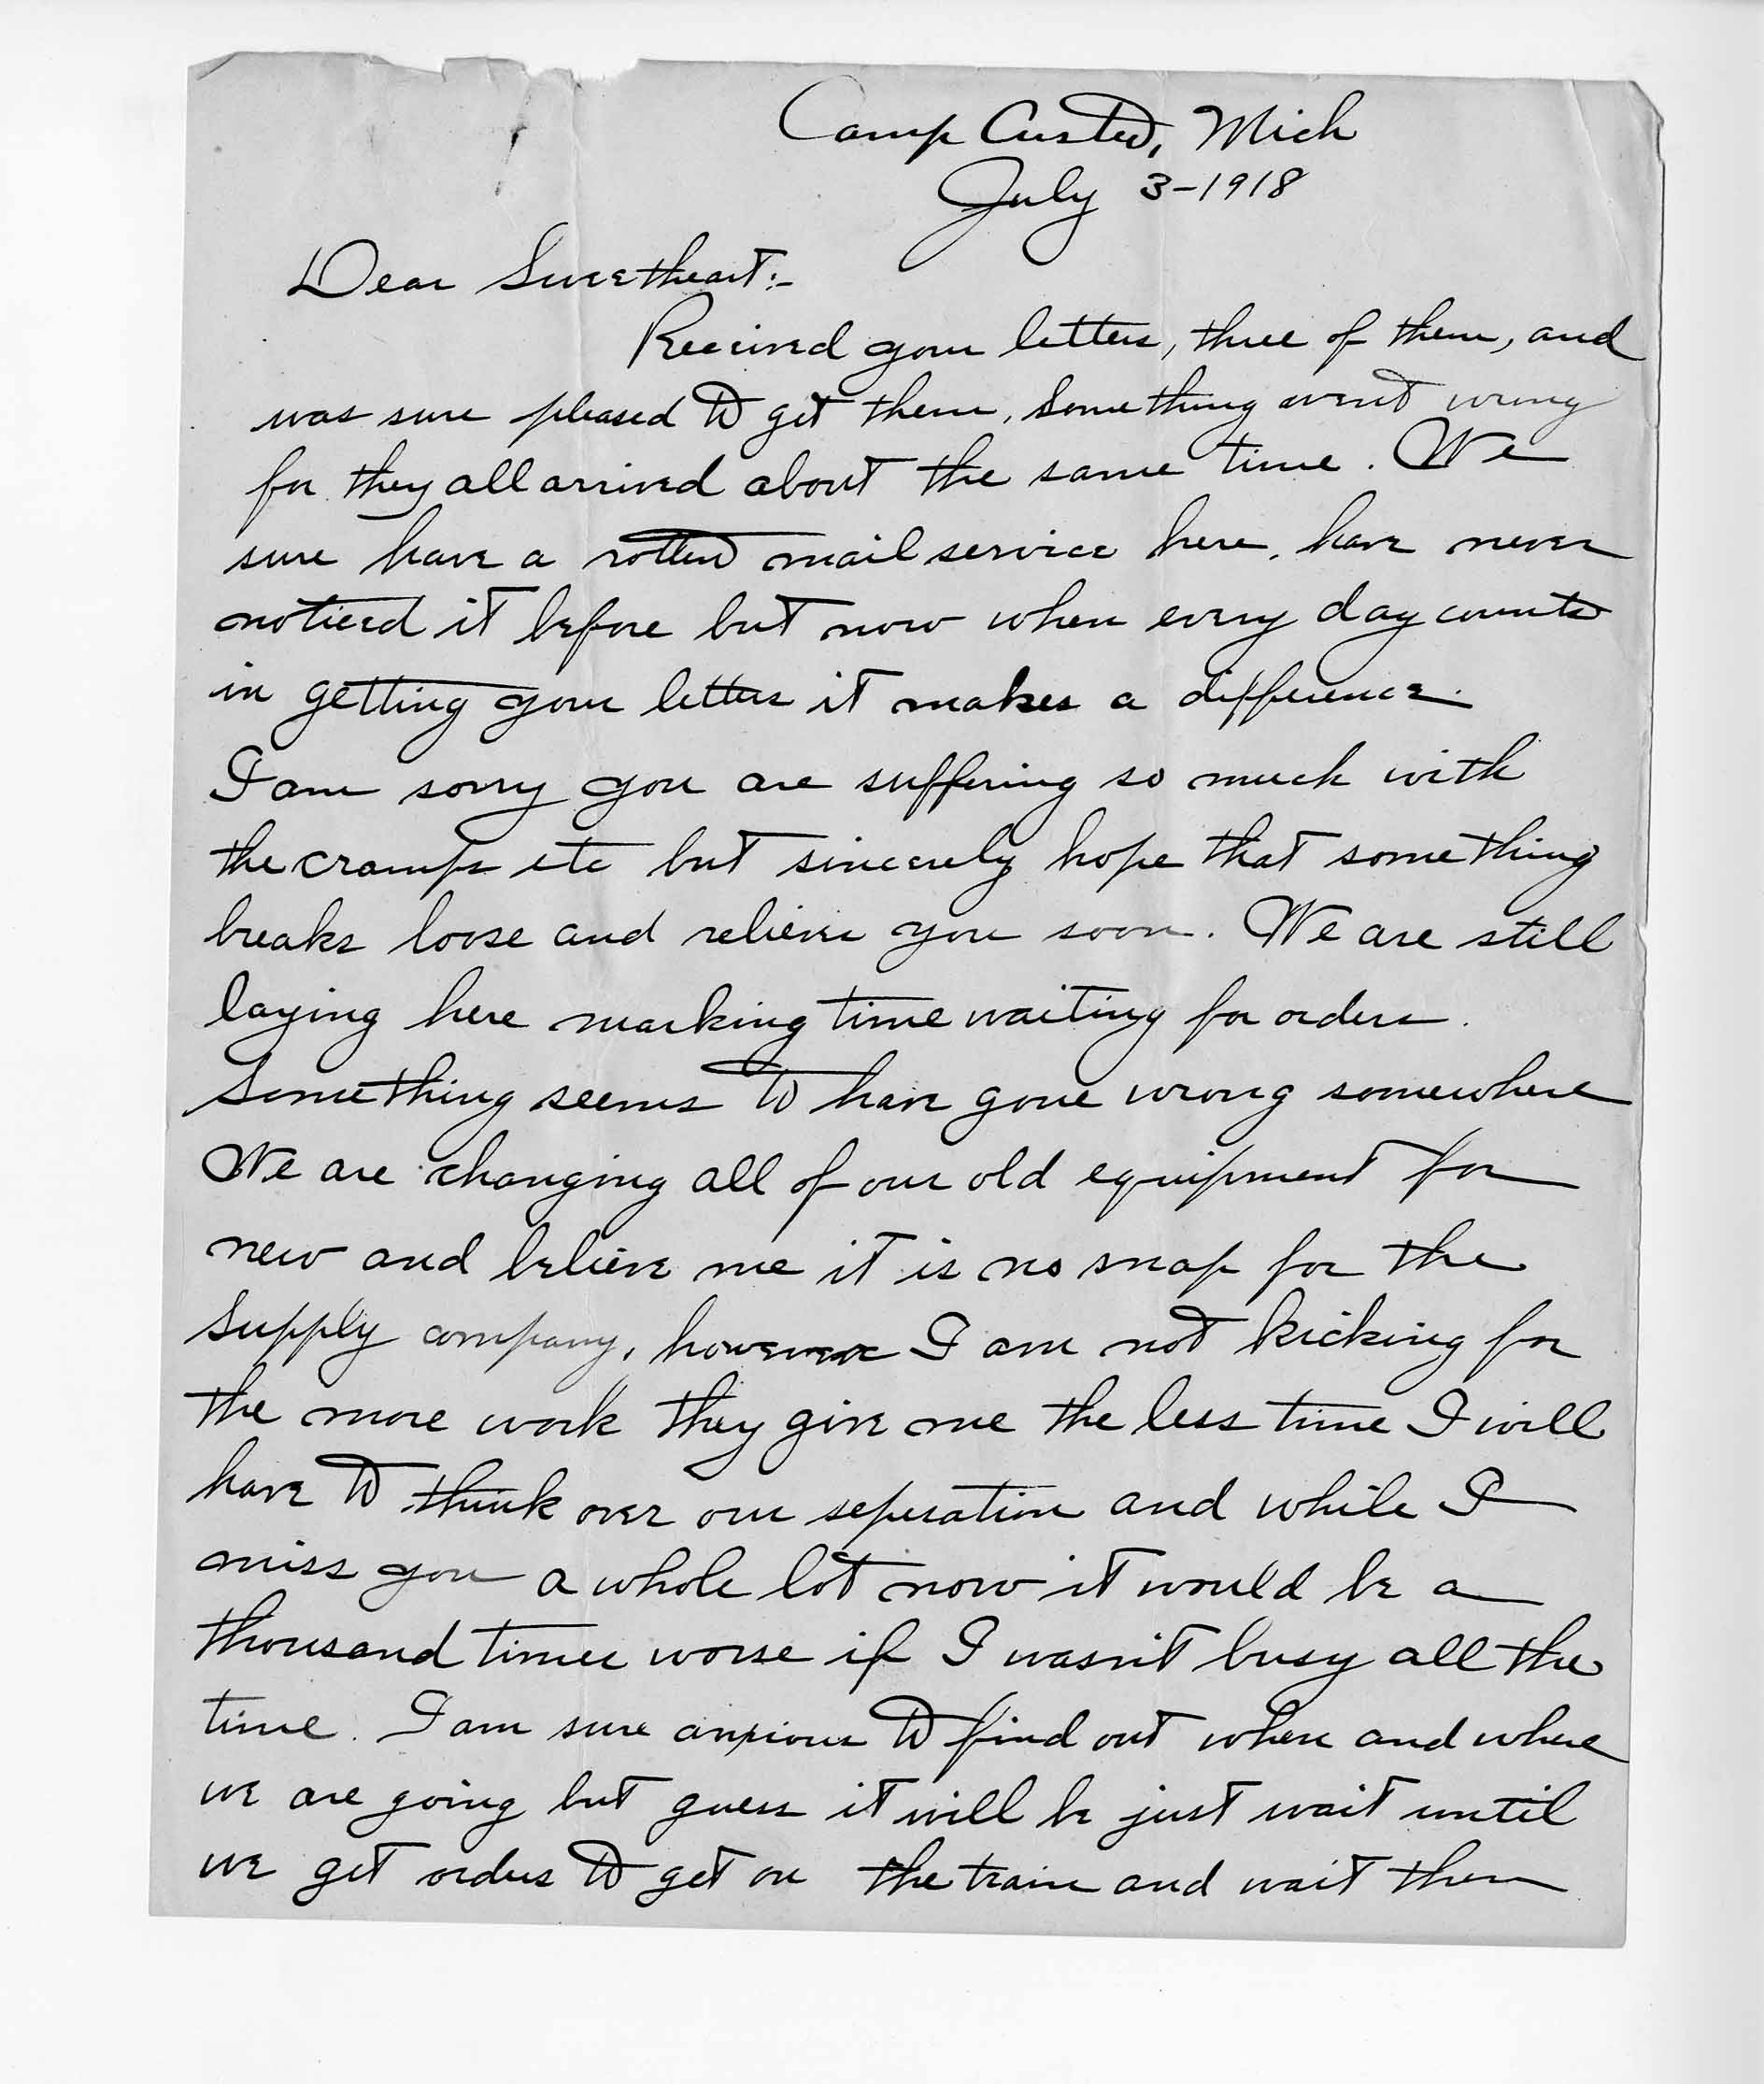 Camp Custer, Mich
July 3-1918
Dear Sweetheart:-
Received your letters, three of them, and
was sure pleased to get them, something went wrong
for they all arrived about the same time. We
sure have a rotten mail service here, have never
noticed it before but now when every day counts
in getting your letters it makes a difference.
I am sorry you are suffering so much with
the cramps etc but sincerely hope that something
breaks loose and relieve you soon. We are still
laying here marking time waiting for orders.
Something seems to have gone wrong somewhere
We are changing all of our old equipment for
new and believe me it is no snap for the
Supply company, however I am not kicking for
the more work they give me the less time I will
have to think over our seperation and while I
miss you a whole lot now it would be a
thousand times worse if I wasn't busy all the
time. I am sure anxious to find out when and where
we are going but guess it will be just wait until
we get orders to get on the train and wait then